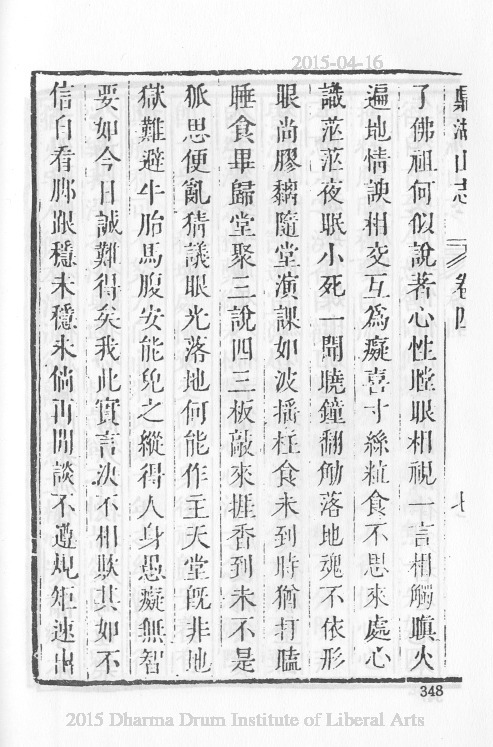 2015-04-16
鼎湖山志 卷四 七
了佛祖何似說著心性瞠眼相視一言相觸瞋火
遍地情諛相交互為癡喜寸絲粒食不思來處心
識茫茫夜眠小死一聞曉鐘翻觔落地魂不依形
眼尚膠黐隨堂演課如波搖柱食未到時猶打瞌
睡食畢歸堂聚三說四三板敲來捱香到未不是
狐思便亂猜議眼光落地何能作主天堂既非地
獄難避牛胎馬腹安能免之縱得人身愚癡無智
要如今日誠難得矣我此實言決不相欺其如不
信自看腳跟穩未穩未倘再閒談不遵規矩速出
348
2015 Dharma Drum Institute of Liberal Arts